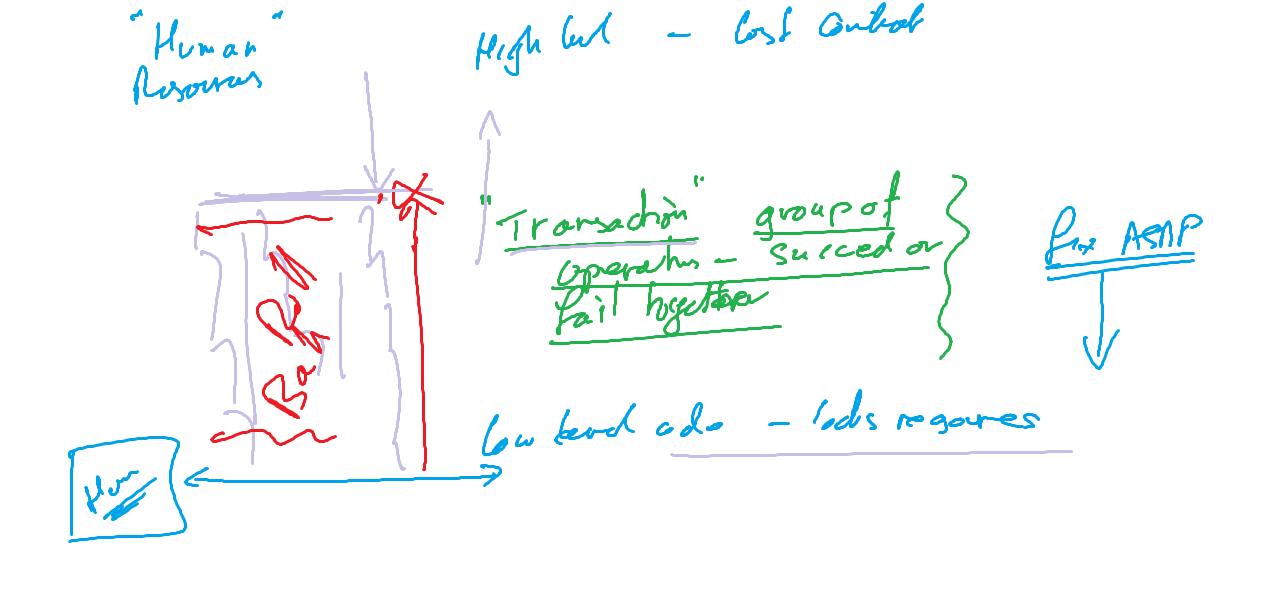 "Human"
Resources
High level - Cost Control
"Transaction" group of
operations - succeed or
fail together
fix ASAP
Low level code -